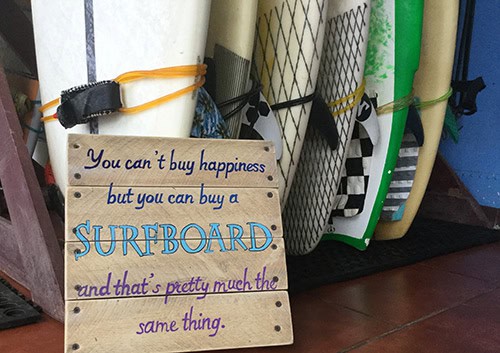 You can't buy happiness
but you can buy a
SURFBOARD
and that's pretty much the
same thing.